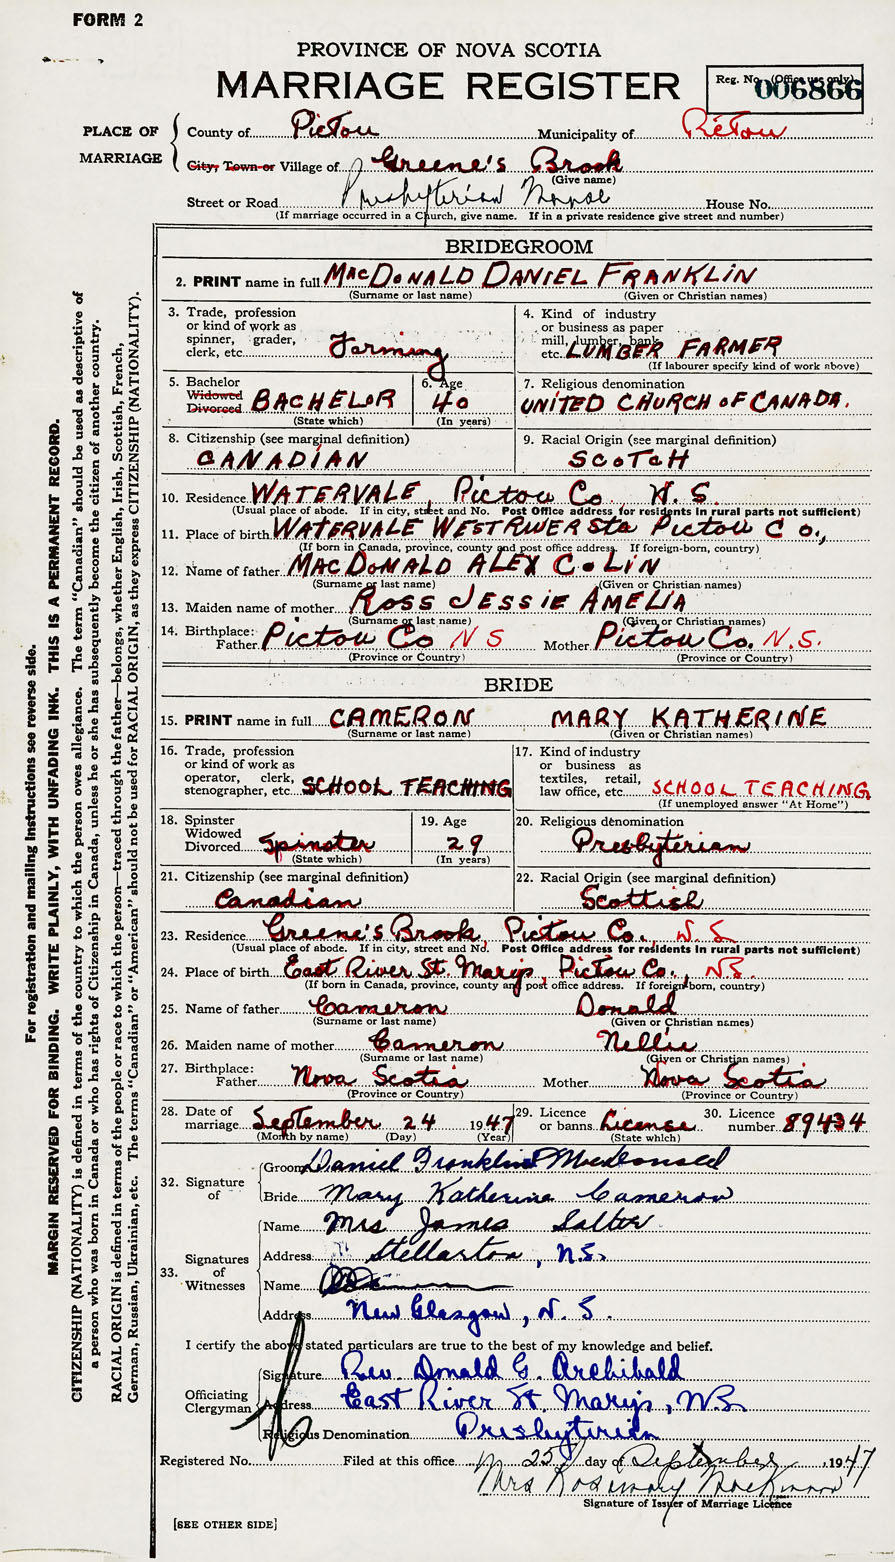 FORM 2
PROVINCE OF NOVA SCOTIA
MARRIAGE REGISTER
Reg. No. (Office use only)
006866
PLACE OF MARRIAGE
County of Pictou Municipality of Pictou
City, Town or Village of Greene's Brook
(Give name)
Street or Road Presbyterian Manse House No.
(If marriage occurred in a Church, give name. If in a private residence give street and number)
BRIDEGROOM
2. PRINT name in full MacDONALD DANIEL FRANKLIN
(Surname or last name) (Given or Christian names)
3. Trade, profession
or kind of work as
spinner, grader,
clerk, etc. Farming
4. Kind of industry
or business as paper
mill, lumber, bank,
etc. LUMBER FARMER
(If labourer specify kind of work above)
5. Bachelor
Widowed
Divorced BACHELOR
(State which)
6. Age
40
(In years)
7. Religious denomination
UNITED CHURCH OF CANADA.
8. Citizenship (see marginal definition)
CANADIAN
9. Racial Origin (see marginal definition)
SCOTCH
10. Residence WATERVALE, Pictou Co. N.S.
(Usual place of abode. If in city, street and No. Post Office address for residents in rural parts not sufficient)
11. Place of birth WATERVALE WEST RIVER Sta Pictou Co.,
(If born in Canada, province, county and post office address. If foreign-born, country)
12. Name of father MAC DONALD ALEX COLIN
(Surname or last name) (Given or Christian names)
13. Maiden name of mother ROSS JESSIE AMELIA
(Surname or last name) (Given or Christian names)
14. Birthplace:
Father Pictou Co N S Mother Pictou Co. N.S.
(Province or Country) (Province or Country)
BRIDE
15. PRINT name in full CAMERON MARY KATHERINE
(Surname or last name) (Given or Christian names)
16. Trade, profession
or kind of work as
operator, clerk,
stenographer, etc. SCHOOL TEACHING
17. Kind of industry
or business as
textiles, retail,
law office, etc. SCHOOL TEACHING
(If unemployed answer "At Home")
18. Spinster
Widowed
Divorced Spinster
(State which)
19. Age
29
(In years)
20. Religious denomination
Presbyterian
21. Citizenship (see marginal definition)
Canadian
22. Racial Origin (see marginal definition)
Scottish
23. Residence Greene's Brook, Pictou Co., N.S.
(Usual place of abode. If in city, street and No. Post Office address for residents in rural parts not sufficient)
24. Place of birth East River St. Marys, Pictou Co., N.S.
(If born in Canada, province, county and post office address. If foreign-born, country)
25. Name of father Cameron Donald
(Surname or last name) (Given or Christian names)
26. Maiden name of mother Cameron Nellie
(Surname or last name) (Given or Christian names)
27. Birthplace:
Father Nova Scotia Mother Nova Scotia
(Province or Country) (Province or Country)
28. Date of
marriage September 24 1947
(Month by name) (Day) (Year)
29. Licence
or banns License
(State which)
30. Licence
number 89434
32. Signature of
Groom Daniel Franklin MacDonald
Bride Mary Katherine Cameron
33. Signatures of Witnesses
Name Mrs James Salter
Address Stellarton, N.S.
Name
Address New Glasgow, N.S.
I certify the above stated particulars are true to the best of my knowledge and belief.
Officiating Clergyman
Signature Rev. Donald G. Archibald
Address East River St. Marys, N.S.
Religious Denomination Presbyterian
Registered No. Filed at this office 25 day of September, 1947
Mrs Rosemary MacKinnon
Signature of Issuer of Marriage Licence
[SEE OTHER SIDE]
For registration and mailing instructions see reverse side.
MARGIN RESERVED FOR BINDING. WRITE PLAINLY, WITH UNFADING INK. THIS IS A PERMANENT RECORD.
CITIZENSHIP (NATIONALITY) is defined in terms of the country to which the person owes allegiance. The term "Canadian" should be used as descriptive of
a person who was born in Canada or who has rights of Citizenship in Canada, unless he or she has subsequently become the citizen of another country.
RACIAL ORIGIN is defined in terms of the people or race to which the person—traced through the father—belongs, whether English, Irish, Scottish, French,
German, Russian, Ukrainian, etc. The terms "Canadian" or "American" should not be used for RACIAL ORIGIN, as they express CITIZENSHIP (NATIONALITY).